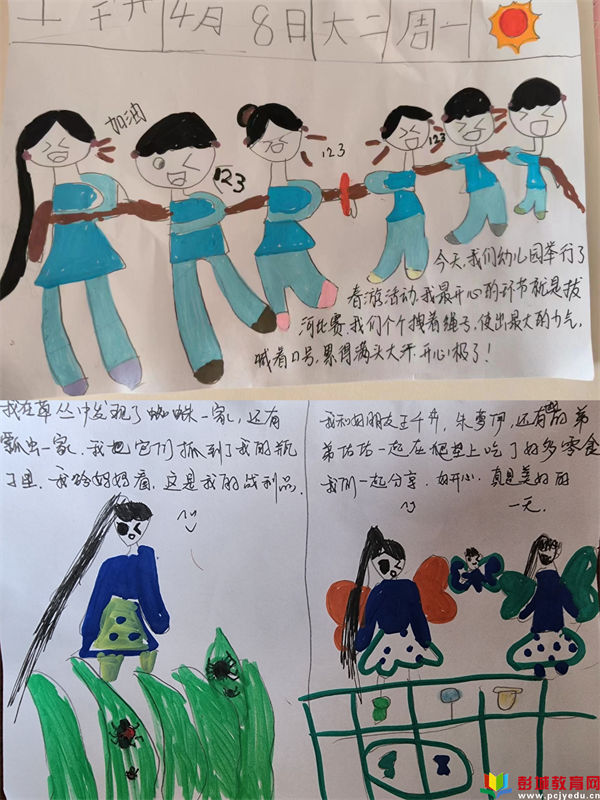 王千卉 4月 8日 大二 周一
加油
123
123
123
今天,我们幼儿园举行了
春游活动.我最开心的环节就是拔
河比赛.我们个个拽着绳子,使出最大的力气,
喊着口号,累得满头大汗.开心极了!
我在草丛中发现了蜘蛛一家,还有
瓢虫一家.我把它们抓到了我的瓶
子里.我给妈妈看,这是我的战利品.
我和好朋友王千卉,朱雩伊,还有的弟
弟姑姑一起在爬垫上吃了好多零食
我们一起分享.好开心.真是美好的
一天.
彭城教育网
www.pcjyedu.cn